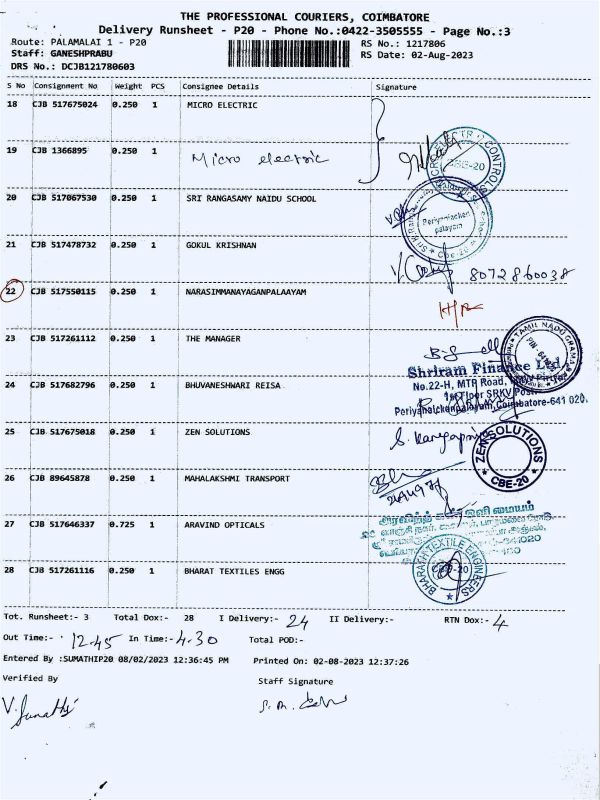 THE PROFESSIONAL COURIERS, COIMBATORE
Delivery Runsheet - P20 - Phone No.:0422-3505555 - Page No.:3
Route: PALAMALAI 1 - P20
RS No.: 1217806
Staff: GANESHPRABU
RS Date: 02-Aug-2023
DRS No.: DCJB121780603
S No Consignment No Weight PCS Consignee Details Signature
18 CJB 517675024 0.250 1 MICRO ELECTRIC
19 CJB 1366895 0.250 1 Micro electric
CBE-20
20 CJB 517067530 0.250 1 SRI RANGASAMY NAIDU SCHOOL
Periyanaicken palayam
21 CJB 517478732 0.250 1 GOKUL KRISHNAN
8072860038
22 CJB 517550115 0.250 1 NARASIMMANAYAGANPALAAYAM
23 CJB 517261112 0.250 1 THE MANAGER
TAMIL NADU GRAMA
Shriram Finance Ltd
24 CJB 517682796 0.250 1 BHUVANESHWARI REISA
No.22-H, MTP Road,
1st Floor SRKV Post
Periyanaickenpalayam, Coimbatore-641 020.
25 CJB 517675018 0.250 1 ZEN SOLUTIONS
ZEN SOLUTIONS CBE-20
26 CJB 89645878 0.250 1 MAHALAKSHMI TRANSPORT
27 CJB 517646337 0.725 1 ARAVIND OPTICALS
28 CJB 517261116 0.250 1 BHARAT TEXTILES ENGG
BHARATH TEXTILE ENGINEERS CBE-20
Tot. Runsheet:- 3 Total Dox:- 28 I Delivery:- 24 II Delivery:- RTN Dox:- 4
Out Time:- 12.45 In Time:- 4.30 Total POD:-
Entered By :SUMATHIP20 08/02/2023 12:36:45 PM Printed On: 02-08-2023 12:37:26
Verified By Staff Signature
V. Sumathi